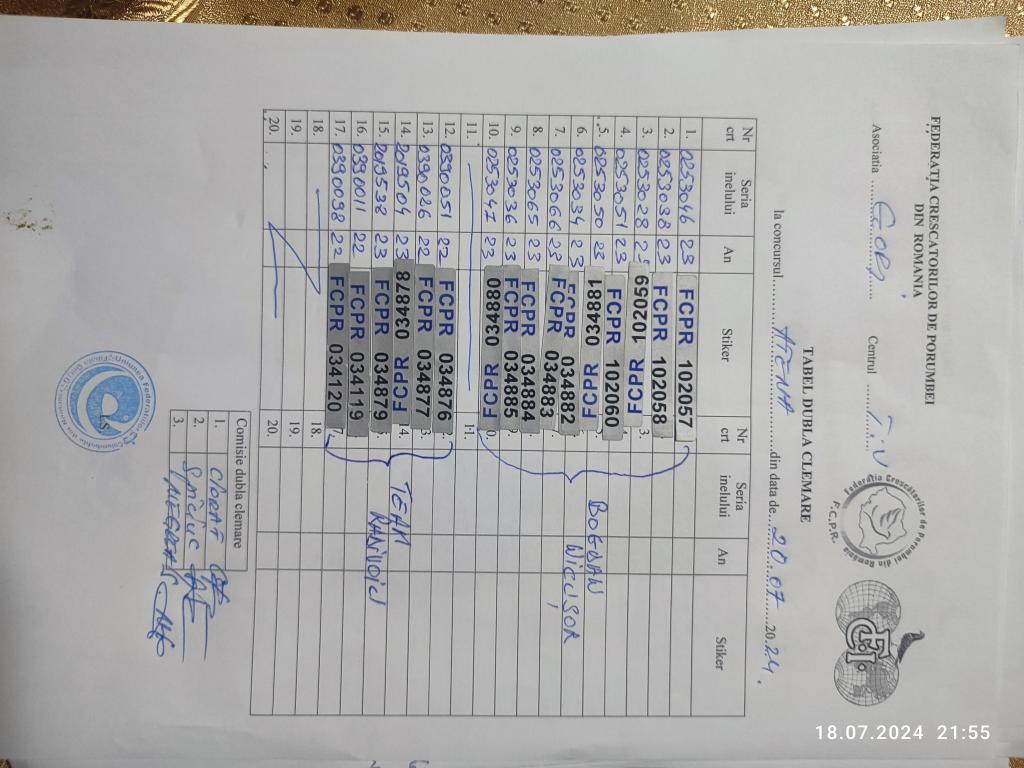 FEDERAŢIA CRESCATORILOR DE PORUMBEI
DIN ROMANIA
Asociatia ........ Centrul ........
Federatia Crescătorilor de Porumbei din România
F.C.P.R.
FCI
TABEL DUBLA CLEMARE
la concursul ATENA din data de 20.07.2024.
Nr crt Seria inelului An Stiker Nr crt Seria inelului An Stiker
1. 0253046 23 FCPR 102057
2. 0253038 23 FCPR 102058
3. 0253028 23 FCPR 102059 3.
4. 0253051 23 FCPR 102060
5. 0253050 23 FCPR 034881
6. 0253034 23 FCPR 034882
7. 0253066 23 FCPR 034883
8. 0253065 23 FCPR 034884
9. 0253036 23 FCPR 034885
10. 0253041 23 FCPR 034880
BOGDAN
NICUSOR
11. 11.
12. 0390051 22 FCPR 034876
13. 0390026 22 FCPR 034877
14. 2019504 23 FCPR 034878
15. 2019538 23 FCPR 034879
16. 0390011 22 FCPR 034119
17. 0390098 22 FCPR 034120
TEAM
18. 18.
19. 19.
20. 20.
Comisie dubla clemare
1.
2.
3.
LS
18.07.2024 21:55